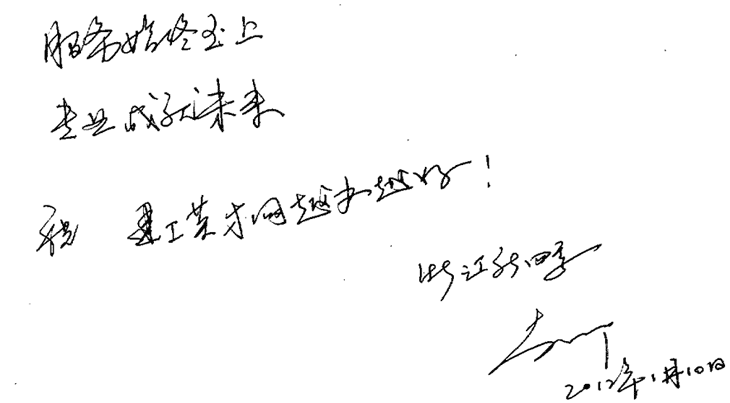 服务始终至上
专业成就未来
祝 建工英才网越办越好!
浙江新四季
2012年1月10日